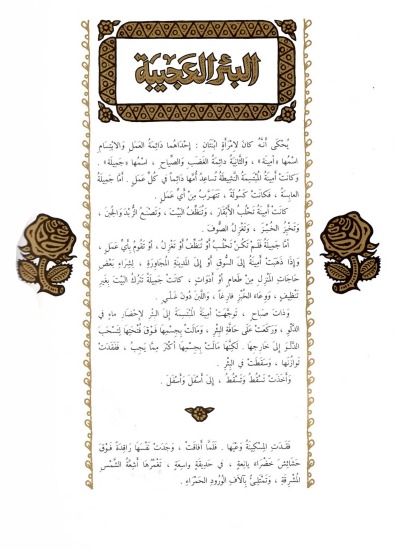 البئر العجيبة
يُحْكَى أَنَّهُ كَانَ لِامْرَأَةٍ ابْنَتَانِ : إِحْدَاهُمَا دَائِمَةُ العَمَلِ وَالابْتِسَامِ
اسْمُهَا «أَمِينَة» ، وَالثَّانِيَةُ دَائِمَةُ الغَضَبِ وَالصِّيَاحِ ، اسْمُهَا «جَمِيلَة» .
وَكَانَتْ أَمِينَةُ المُبْتَسِمَةُ النَّشِيطَةُ تُسَاعِدُ أُمَّهَا دَائِماً فِي كُلِّ عَمَلٍ . أَمَّا جَمِيلَةُ
العَابِسَةُ ، فَكَانَتْ كَسُولَةً ، تَتَهَرَّبُ مِنْ أَيِّ عَمَلٍ .
كَانَتْ أَمِينَةُ تَحْلُبُ الأَبْقَارَ ، وَتُنَظِّفُ البَيْتَ ، وَتَصْنَعُ الزُّبْدَ وَالجُبْنَ ،
وَتَخْبِزُ الخُبْزَ ، وَتَغْزِلُ الصُّوفَ .
أَمَّا جَمِيلَةُ فَلَمْ تَكُنْ تَحْلُبُ أَوْ تُنَظِّفُ أَوْ تَغْزِلُ ، أَوْ تَقُومُ بِأَيِّ عَمَلٍ .
وَإِذَا ذَهَبَتْ أَمِينَةُ إِلَى السُّوقِ أَوْ إِلَى المَدِينَةِ المُجَاوِرَةِ ، لِشِرَاءِ بَعْضِ
حَاجَاتِ المَنْزِلِ مِنْ طَعَامٍ أَوْ أَدَوَاتٍ ، كَانَتْ جَمِيلَةُ تَتْرُكُ البَيْتَ بِغَيْرِ
تَنْظِيفٍ ، وَوِعَاءَ الخُبْزِ فَارِغاً ، وَاللَّبَنَ دُونَ غَلْيٍ .
وَذَاتَ صَبَاحٍ ، تَوَجَّهَتْ أَمِينَةُ المُبْتَسِمَةُ إِلَى البِئْرِ لإِحْضَارِ مَاءٍ فِي
الدَّلْوِ ، وَرَكَعَتْ عَلَى حَافَّةِ البِئْرِ ، وَمَالَتْ بِجِسْمِهَا فَوْقَ فُتْحَتِهَا لِتَسْحَبَ
الدَّلْوَ إِلَى خَارِجِهَا . لَكِنَّهَا مَالَتْ بِجِسْمِهَا أَكْثَرَ مِمَّا يَجِبُ ، فَفَقَدَتْ
تَوَازُنَهَا ، وَسَقَطَتْ فِي البِئْرِ .
وَأَخَذَتْ تَسْقُطُ وَتَسْقُطُ ، إِلَى أَسْفَلَ وَأَسْفَلَ .
فَقَدَتِ المِسْكِينَةُ وَعْيَهَا . فَلَمَّا أَفَاقَتْ ، وَجَدَتْ نَفْسَهَا رَاقِدَةً فَوْقَ
حَشَائِشَ خَضْرَاءَ يَانِعَةٍ ، فِي حَدِيقَةٍ وَاسِعَةٍ ، تَغْمُرُهَا أَشِعَّةُ الشَّمْسِ
المُشْرِقَةِ ، وَتَمْتَلِئُ بِآلَافِ الوُرُودِ الحَمْرَاءِ .